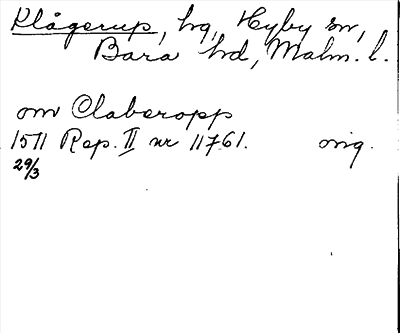 Klågerup, hg, Hyby sn,
Bara hd, Malm. l.
om Claberopp
1511 Rep. II nr 11761. orig.
29/3